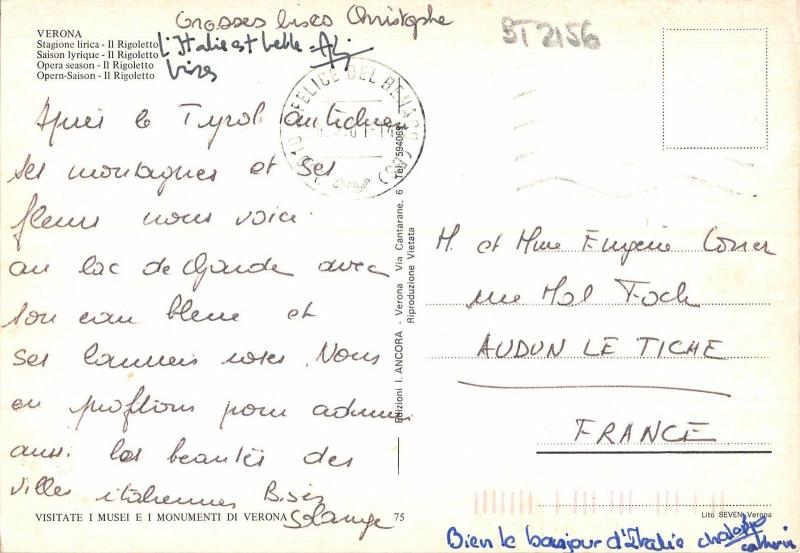 Grosses bises Christophe
BT2156
VERONA
Stagione lirica - Il Rigoletto
Saison lyrique - Il Rigoletto
Opera season - Il Rigoletto
Opern-Saison - Il Rigoletto
L'Italie est belle
bises
FELICE DEL BENACO
Après le Tyrol autrichien
ses montagnes et ses
fleurs nous voici
au lac de Garde avec
son eau bleue et
ses lauriers roses. Nous
en profitons pour admirer
aussi les beautés des
villes italiennes Bises
Solange
Edizioni I. ANCORA - Verona Via Cantarane, 6 Tel. 594069
Riproduzione Vietata
M. et Mme Eugène
rue Mal Foch
AUDUN LE TICHE
FRANCE
VISITATE I MUSEI E I MONUMENTI DI VERONA
75
Lito SEVEN Verona
Bien le bonjour d'Italie